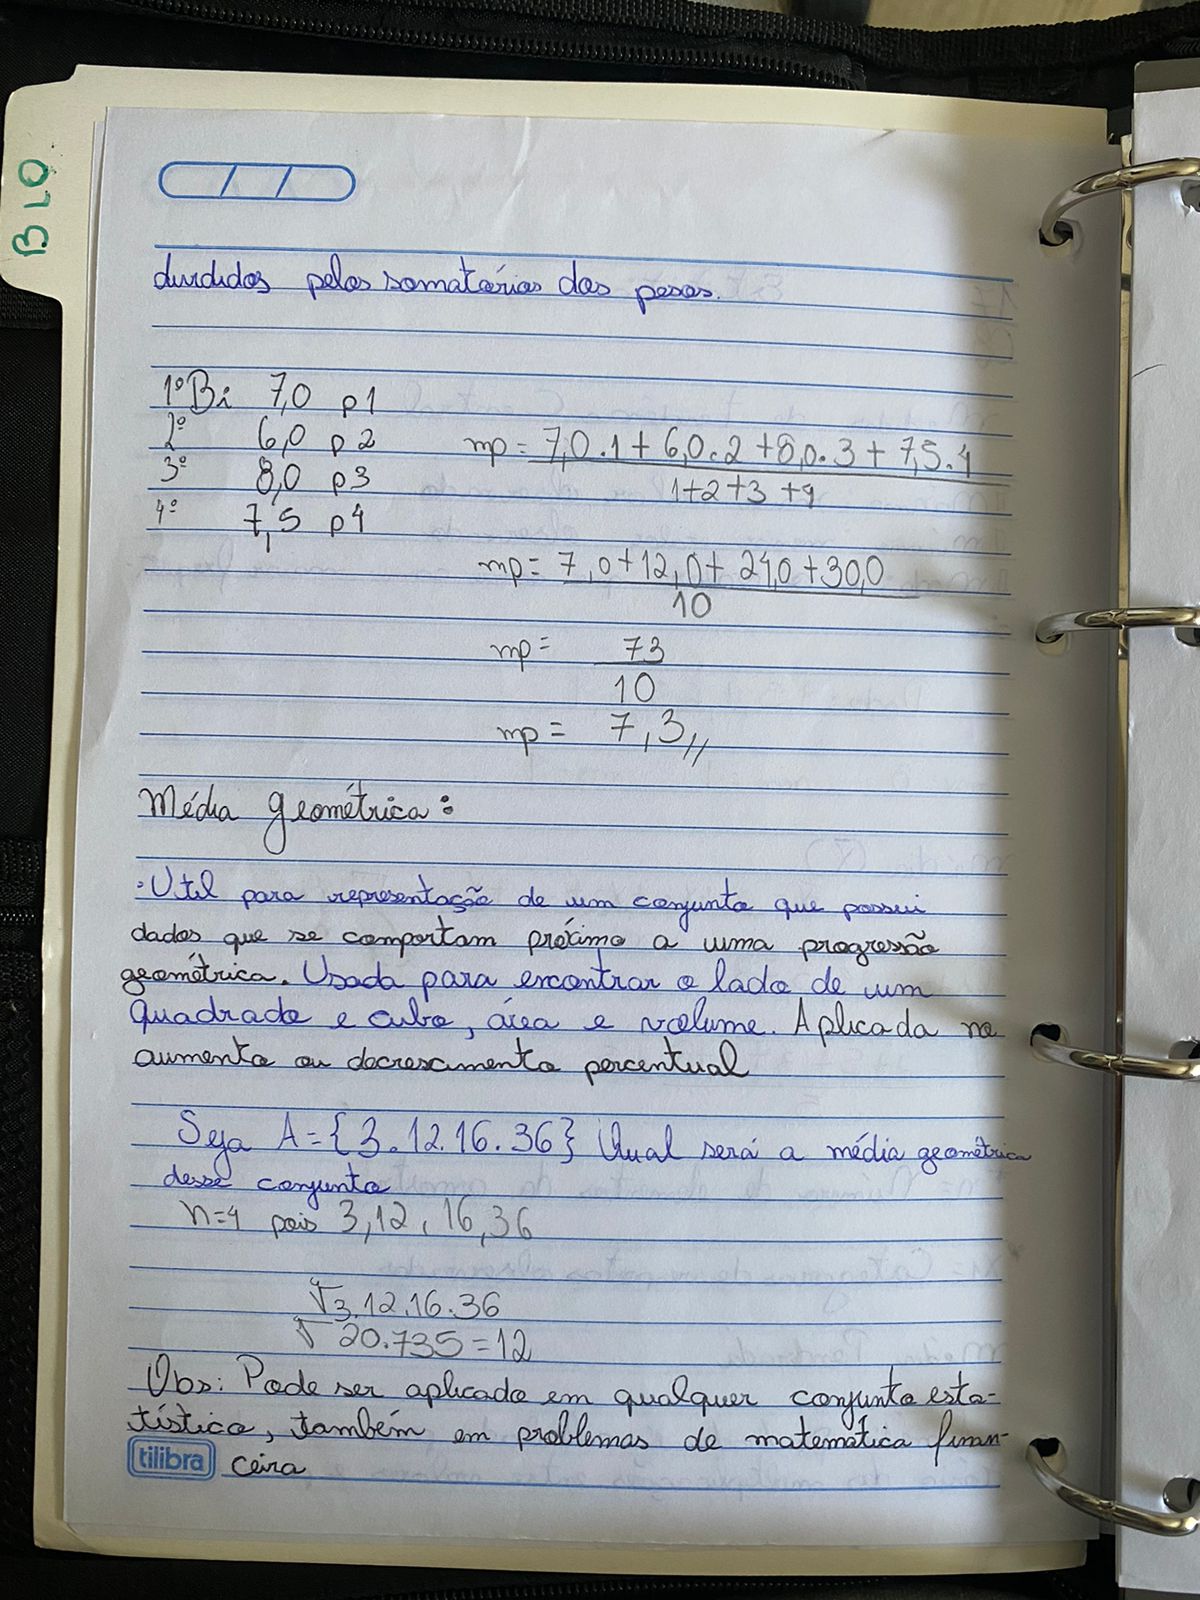 BLO
divididos pelos somatórios dos pesos.
1º Bi 7,0 p1
2º 6,0 p2
3º 8,0 p3
4º 7,5 p4
mp = 7,0.1 + 6,0.2 + 8,0.3 + 7,5.4
1+2+3+4
mp = 7,0+12,0+24,0+30,0
10
mp = 73
10
mp = 7,3,,
Média geométrica:
· Util para representação de um conjunto que possui
dados que se comportam próximo a uma progressão
geométrica. Usada para encontrar o lado de um
quadrado e cubo, área e volume. Aplicada no
aumento ou decrescimento percentual
Seja A = {3.12.16.36} Qual será a média geométrica
desse conjunto
n=4 pois 3,12,16,36
⁴√3.12.16.36
√20.735=12
Obs: Pode ser aplicado em qualquer conjunto esta-
tístico, também em problemas de matemática finan-
tilibra ceira